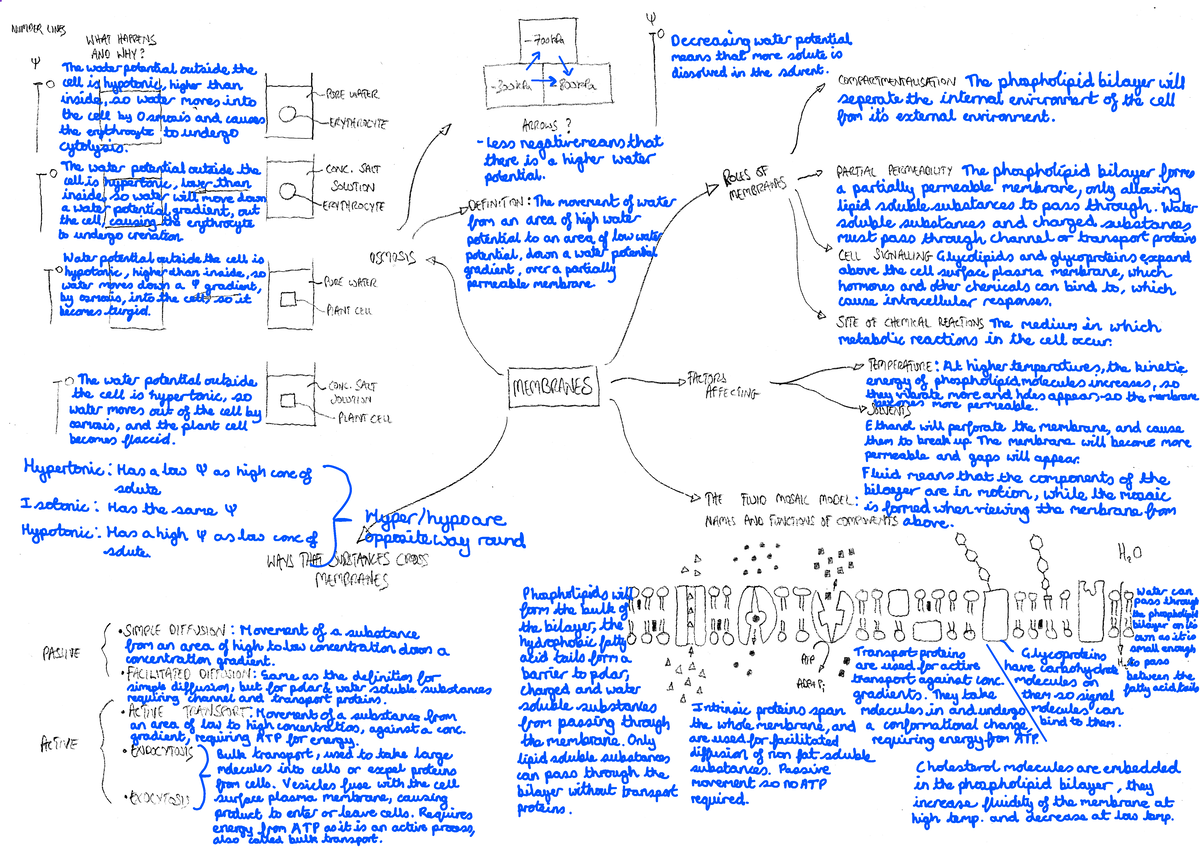 NUMBER LINES
WHAT HAPPENS
AND WHY?
Ψ
O
The water potential outside the
cell is hypotonic, higher than
inside, so water moves into
the cell by Osmosis and causes
the erythrocyte to undergo
cytolysis.
PURE WATER
ERYTHROCYTE
O
The water potential outside the
cell is hypertonic, lower than
inside, so water will move down
a water potential gradient, out
the cell, causing the erythrocyte
to undergo crenation
CONC. SALT
SOLUTION
ERYTHROCYTE
O
Water potential outside the cell is
hypotonic, higher than inside, so
water moves down a Ψ gradient,
by osmosis, into the cell, so it
becomes turgid.
PURE WATER
PLANT CELL
O
The water potential outside
the cell is hypertonic, so
water moves out of the cell by
osmosis, and the plant cell
becomes flaccid.
CONC. SALT
SOLUTION
PLANT CELL
Hypertonic: Has a low Ψ as high conc of
solute
Isotonic: Has the same Ψ
Hypotonic: Has a high Ψ as low conc of
solute.
Hyper/hypo are
opposite way round
-700kPa
-300kPa
-800kPa
Ψ
O
Decreasing water potential
means that more solute is
dissolved in the solvent.
ARROWS?
- Less negative means that
there is a higher water
potential.
OSMOSIS
DEFINITION: The movement of water
from an area of high water
potential to an area of low water
potential, down a water potential
gradient, over a partially
permeable membrane
MEMBRANES
ROLES OF
MEMBRANES
COMPARTMENTALISATION The phospholipid bilayer will
seperate the internal environment of the cell
from it's external environment.
PARTIAL PERMEABILITY The phospholipid bilayer forms
a partially permeable membrane, only allowing
lipid soluble substances to pass through. Water
soluble substances and charged substances
must pass through channel or transport proteins
CELL SIGNALLING Glycolipids and glycoproteins expand
above the cell surface plasma membrane, which
hormones and other chemicals can bind to, which
cause intracellular responses.
SITE OF CHEMICAL REACTIONS The medium in which
metabolic reactions in the cell occur.
FACTORS
AFFECTING
TEMPERATURE: At higher temperatures, the kinetic
energy of phospholipid molecules increases, so
they vibrate more and holes appear-so the membrane
becomes more permeable.
SOLVENTS
Ethanol will perforate the membrane, and cause
them to break up. The membrane will become more
permeable and gaps will appear.
THE FLUID MOSAIC MODEL:
NAMES AND FUNCTIONS OF COMPONENTS
Fluid means that the components of the
bilayer are in motion, while the mosaic
is formed when viewing the membrane from
above.
WAYS THAT SUBSTANCES CROSS
MEMBRANES
PASSIVE
• SIMPLE DIFFUSION: Movement of a substance
from an area of high to low concentration down a
concentration gradient.
• FACILITATED DIFFUSION: Same as the definition for
simple diffusion, but for polar & water soluble substances
requiring channel and transport proteins.
ACTIVE
• ACTIVE TRANSPORT: Movement of a substance from
an area of low to high concentration, against a conc.
gradient, requiring ATP for energy.
• ENDOCYTOSIS
• EXOCYTOSIS
Bulk transport, used to take large
molecules into cells or expel proteins
from cells. Vesicles fuse with the cell
surface plasma membrane, causing
product to enter or leave cells. Requires
energy from ATP as it is an active process,
also called bulk transport.
Phospholipids will
form the bulk of
the bilayer, the
hydrophobic fatty
acid tails form a
barrier to polar,
charged and water
soluble substances
from passing through
the membrane. Only
lipid soluble substances
can pass through the
bilayer without transport
proteins.
Intrinsic proteins span
the whole membrane, and
are used for facilitated
diffusion of non fat soluble
substances. Passive
movement so no ATP
required.
ATP
ADP+Pi
Transport proteins
are used for active
transport against conc.
gradients. They take
molecules in and undergo
a conformational change,
requiring energy from ATP.
Glycoproteins
have carbohydrate
molecules on
them so signal
molecules can
bind to them.
H₂O
Water can
pass through
the phospholipid
bilayer on its
own as it is
small enough
to pass
between the
fatty acid tails
H₂O
Cholesterol molecules are embedded
in the phospholipid bilayer, they
increase fluidity of the membrane at
high temp. and decrease at low temp.